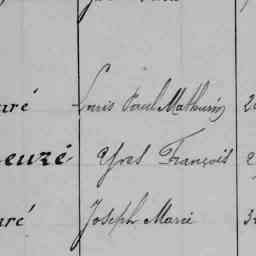 aré Louis Paul Mathurin 2
euzé Yves François 2
aré Joseph Marie 3